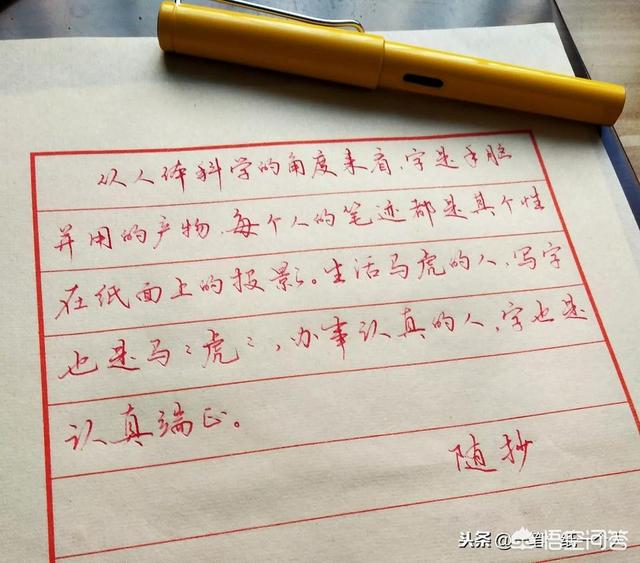 从人体科学的角度来看,字是手脑
并用的产物,每个人的笔迹都是其个性
在纸面上的投影。生活马虎的人,写字
也是马〻虎〻,办事认真的人,字也是
认真端正。
随抄
头条@一笔一纸一
悟空问答